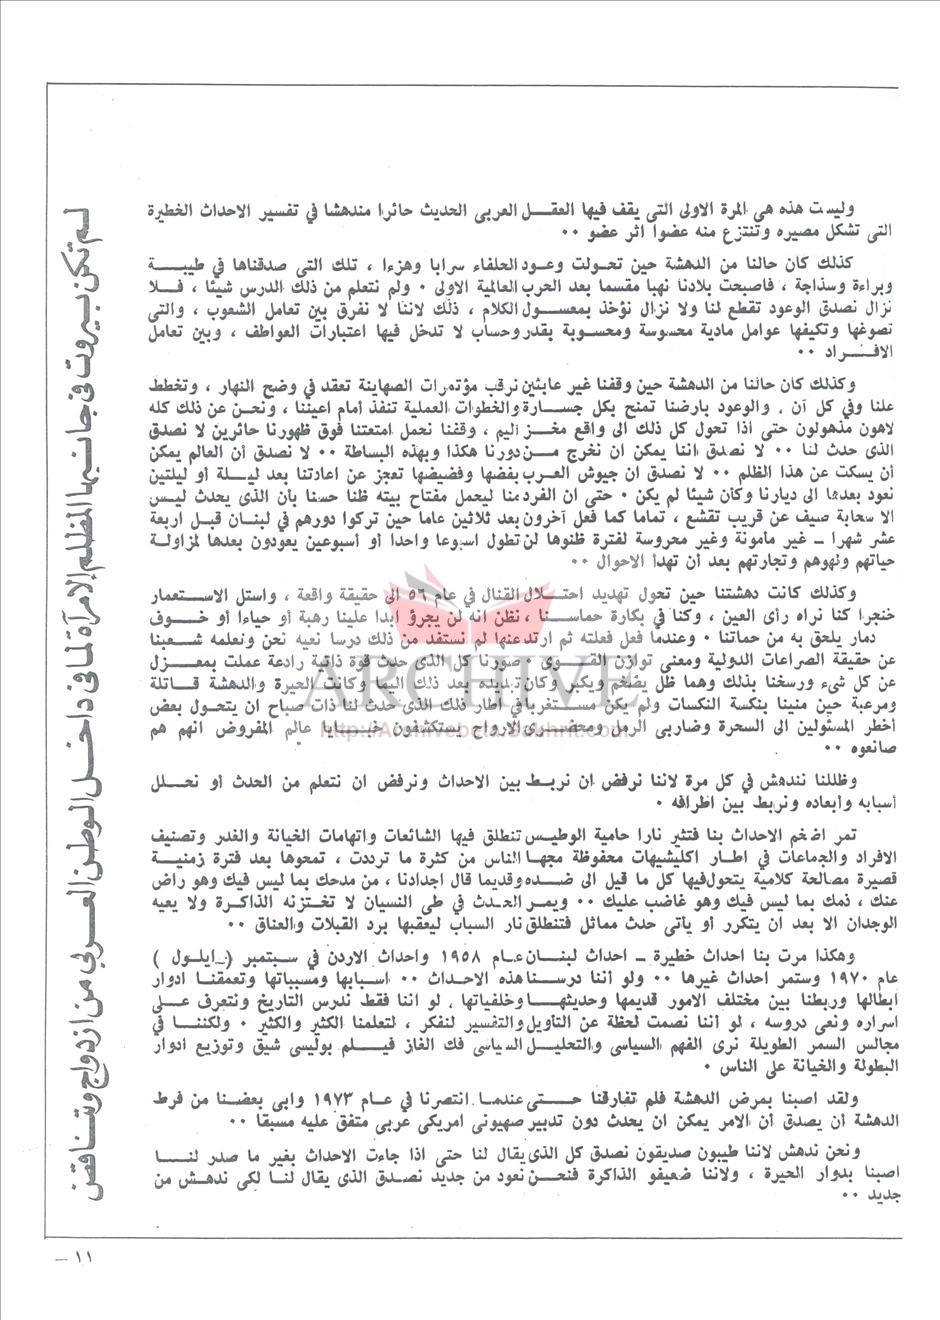 لم تكن بيروت في جانبها المظلم إلا مرآة لما في داخل الوطن العربي من ازدواج وتناقض
وليست هذه هي المرة الاولى التي يقف فيها العقل العربي الحديث حائرا مندهشا في تفسير الاحداث الخطيرة
التي تشكل مصيره وتنتزع منه عضوا اثر عضو ٠٠
كذلك كان حالنا من الدهشة حين تحولت وعود الحلفاء سرابا وهزءا ، تلك التي صدقناها في طيبة
وبراءة وسذاجة ، فاصبحت بلادنا نهبا مقسما بعد الحرب العالمية الاولى ٠ ولم نتعلم من ذلك الدرس شيئا ، فلا
نزال نصدق الوعود تقطع لنا ولا نزال نؤخذ بمعسول الكلام ، ذلك لاننا لا نفرق بين تعامل الشعوب ، والتي
تصوغها وتكيفها عوامل مادية محسوسة ومحسوبة بقدر وحساب لا تدخل فيها اعتبارات العواطف ، وبين تعامل
الافراد ٠٠
وكذلك كان حالنا من الدهشة حين وقفنا غير عابئين نرقب مؤتمرات الصهاينة تعقد في وضح النهار ، وتخطط
علنا وفي كل آن ، والوعود بارضنا تمنح بكل جسارة والخطوات العملية تنفذ أمام اعيننا ، ونحن عن ذلك كله
لاهون مذهولون حتى اذا تحول كل ذلك الى واقع مخز اليم ، وقفنا نحمل امتعتنا فوق ظهورنا حائرين لا نصدق
الذى حدث لنا ٠٠ لا نصدق اننا يمكن ان نخرج من دورنا هكذا وبهذه البساطة ٠٠ لا نصدق أن العالم يمكن
أن يسكت عن هذا الظلم ٠٠ لا نصدق ان جيوش العرب بقضها وقضيضها تعجز عن اعادتنا بعد ليلة أو ليلتين
نعود بعدها الى ديارنا وكأن شيئا لم يكن ٠ حتى ان الفرد منا ليحمل مفتاح بيته ظنا حسنا بأن الذى يحدث ليس
الا سحابة صيف عن قريب تقشع ، تماما كما فعل آخرون بعد ثلاثين عاما حين تركوا دورهم في لبنان قبل اربعة
عشر شهرا ــ غير مأمونة وغير محروسة لفترة ظنوها لن تطول اسبوعا واحدا أو أسبوعين يعودون بعدها لمزاولة
حياتهم ولهوهم وتجارتهم بعد أن تهدأ الاحوال ٠٠
وكذلك كانت دهشتنا حين تحول تهديد احتلال القنال في عام ٥٦ الى حقيقة واقعة ، واستل الاستعمار
خنجرا كنا نراه رأى العين ، وكنا في بكارة حماسنا ، نظن انه لن يجرؤ أبدا علينا رهبة أو حياءا أو خوف
دمار يلحق به من حماتنا ٠ وعندما فعل فعلته ثم ارتد عنها لم نستفد من ذلك درسا نعيه نحن ونعلمه شعبنا
عن حقيقة الصراعات الدولية ومعنى توازن القوى ، صورنا كل الذى حدث قوة ذاتية رادعة عملت بمعزل
عن كل شىء ورسخنا بذلك وهما ظل يضخم ويكبر وكان تبديده بعد ذلك اليما وكانت الحيرة والدهشة قاتلة
ومرعبة حين منينا بنكسة النكسات ولم يكن مستغربا في اطار ذلك الذى حدث لنا ذات صباح ان يتحول بعض
اخطر المسئولين الى السحرة وضاربى الرمل ومحضرى الارواح يستكشفون خبايا عالم المفروض انهم هم
صانعوه ٠٠
وظللنا نندهش في كل مرة لاننا نرفض ان نربط بين الاحداث ونرفض ان نتعلم من الحدث أو نحلل
أسبابه وأبعاده ونربط بين اطرافه ٠
تمر اضخم الاحداث بنا فتثير نارا حامية الوطيس تنطلق فيها الشائعات واتهامات الخيانة والغدر وتصنيف
الافراد والجماعات في اطار اكليشيهات محفوظة مجها الناس من كثرة ما ترددت ، تمحوها بعد فترة زمنية
قصيرة مصالحة كلامية يتحول فيها كل ما قيل الى ضده وقديما قال اجدادنا ، من مدحك بما ليس فيك وهو راض
عنك ، ذمك بما ليس فيك وهو غاضب عليك ٠٠ ويمر الحدث في طى النسيان لا تختزنه الذاكرة ولا يعيه
الوجدان الا بعد ان يتكرر أو يأتى حدث مماثل فتنطلق نار السباب ليعقبها برد القبلات والعناق ٠٠
وهكذا مرت بنا احداث خطيرة ــ احداث لبنان عام ١٩٥٨ واحداث الاردن في سبتمبر ( ايلول )
عام ١٩٧٠ وستمر احداث غيرها ٠٠ ولو أننا درسنا هذه الاحداث ٠٠ اسبابها ومسبباتها وتعمقنا ادوار
ابطالها وربطنا بين مختلف الامور قديمها وحديثها وخلفياتها ، لو اننا فقط ندرس التاريخ ونتعرف على
اسراره ونعى دروسه ، لو أننا نصمت لحظة عن التأويل والتفسير لنفكر ، لتعلمنا الكثير والكثير ٠ ولكننا في
مجالس السمر الطويلة نرى الفهم السياسى والتحليل السياسى فك الغاز فيلم بوليسى شيق وتوزيع ادوار
البطولة والخيانة على الناس ٠
ولقد اصبنا بمرض الدهشة فلم تفارقنا حتى عندما انتصرنا في عام ١٩٧٣ وابى بعضنا من فرط
الدهشة أن يصدق أن الامر يمكن ان يحدث دون تدبير صهيونى امريكى عربى متفق عليه مسبقا ٠٠
ونحن ندهش لاننا طيبون صديقون نصدق كل الذى يقال لنا حتى اذا جاءت الاحداث بغير ما صدر لنا
اصبنا بدوار الحيرة ، ولاننا ضعيفو الذاكرة فنحن نعود من جديد نصدق الذى يقال لنا لكى ندهش من
جديد ٠٠
ARCHIVE
١١ ــ